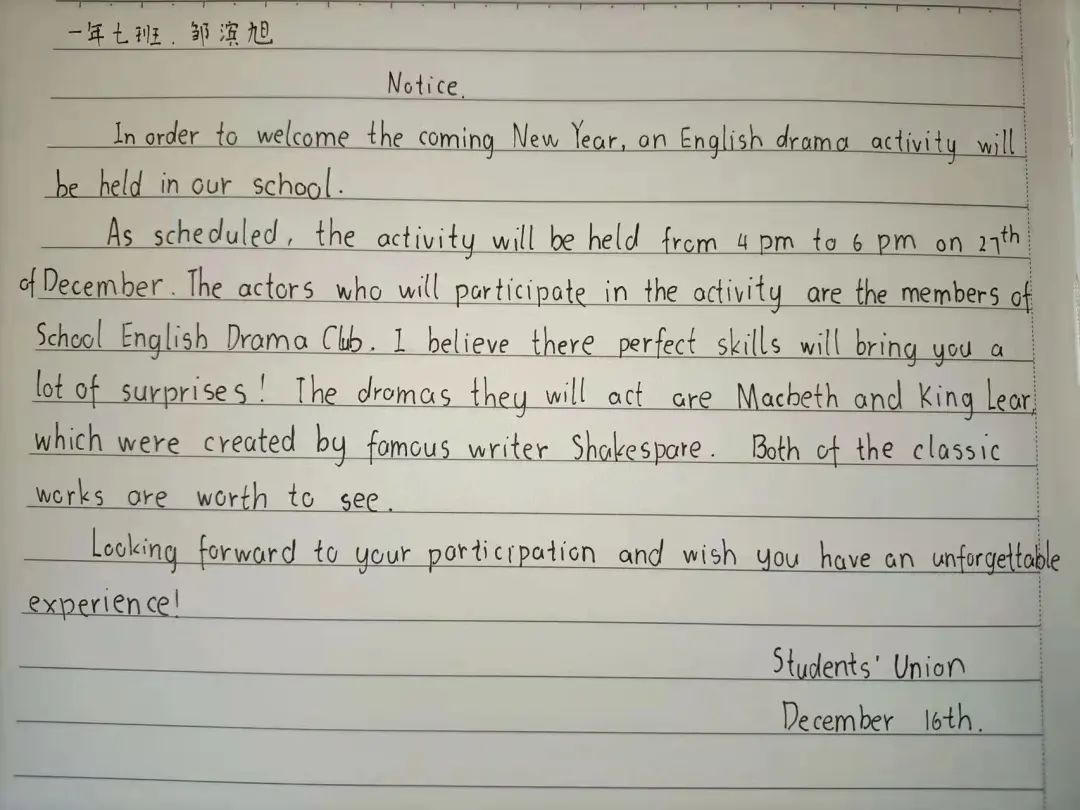 一年七班.邹滨旭
Notice.
In order to welcome the coming New Year, an English drama activity will
be held in our school.
As scheduled, the activity will be held from 4 pm to 6 pm on 27th
of December. The actors who will participate in the activity are the members of
School English Drama Club. I believe there perfect skills will bring you a
lot of surprises! The dramas they will act are Macbeth and King Lear,
which were created by famous writer Shakespare. Both of the classic
works are worth to see.
Looking forward to your participation and wish you have an unforgettable
experience!
Students' Union
December 16th.